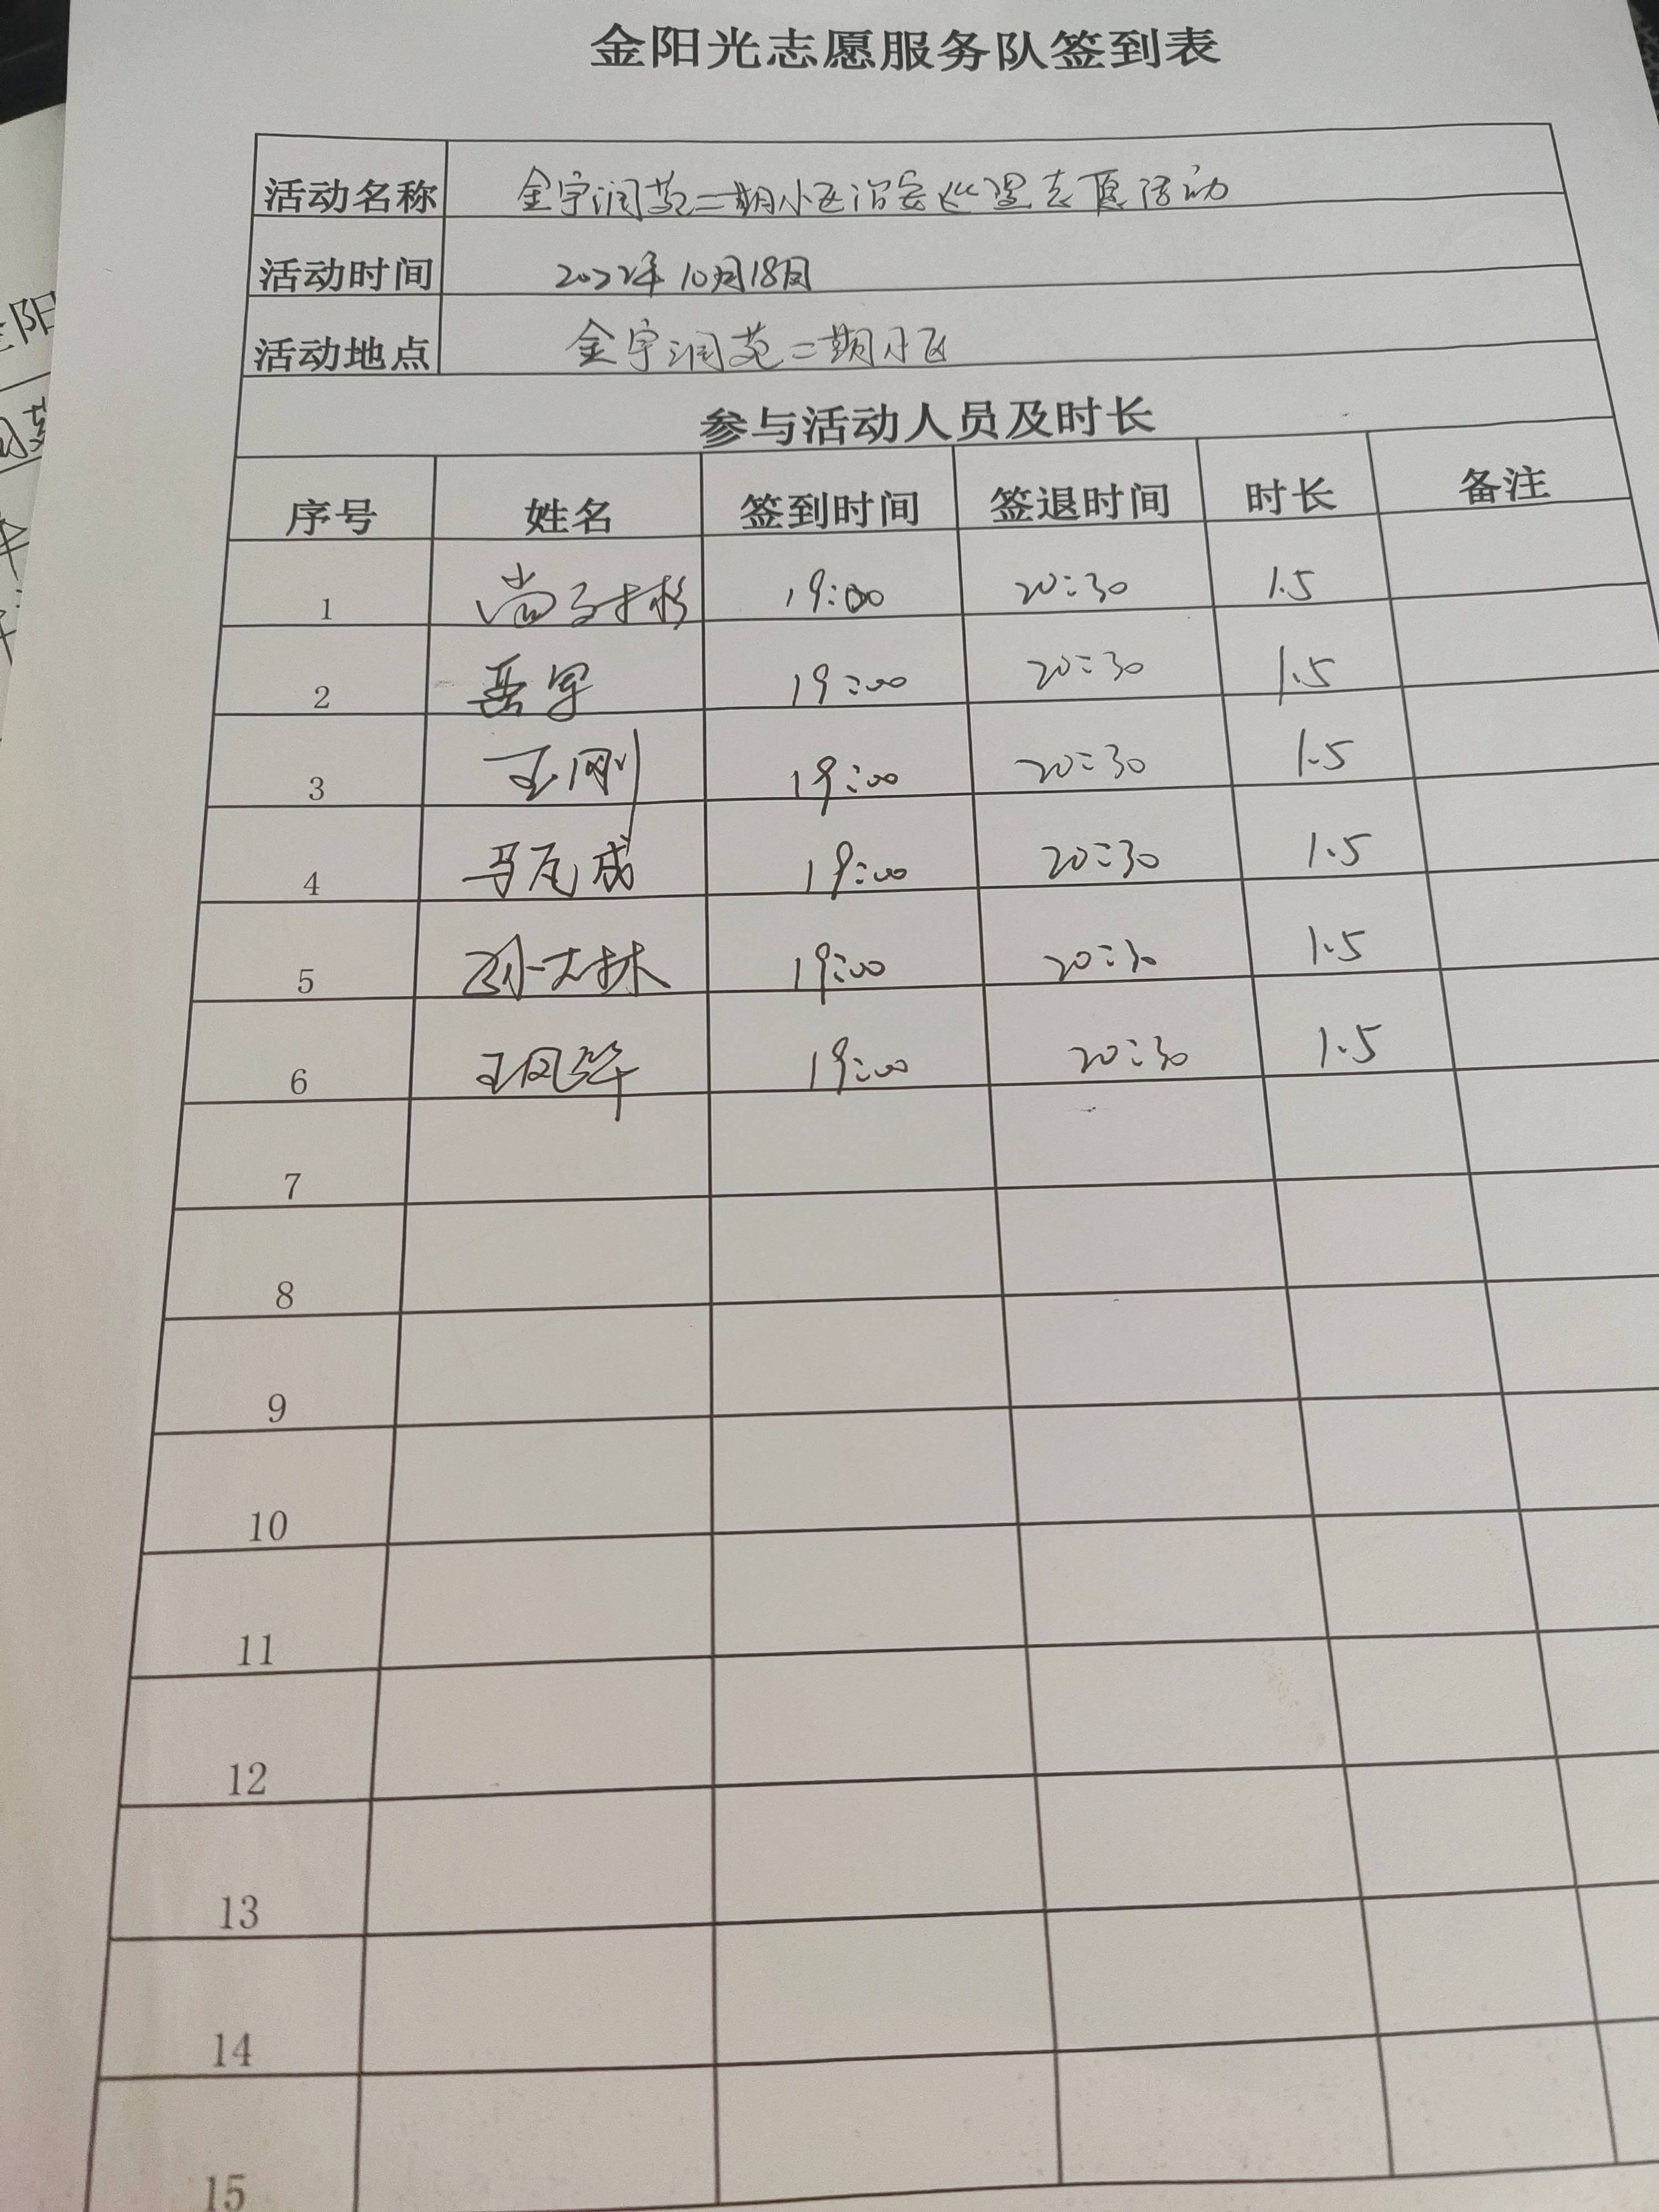 金阳光志愿服务队签到表
活动名称 金宇润苑二期小区治安巡逻志愿活动
活动时间 2022年10月18日
活动地点 金宇润苑二期小区
参与活动人员及时长
序号 姓名 签到时间 签退时间 时长 备注
1 19:00 20:30 1.5
2 19:00 20:30 1.5
3 王刚 19:00 20:30 1.5
4 19:00 20:30 1.5
5 19:00 20:30 1.5
6 19:00 20:30 1.5
7
8
9
10
11
12
13
14
15